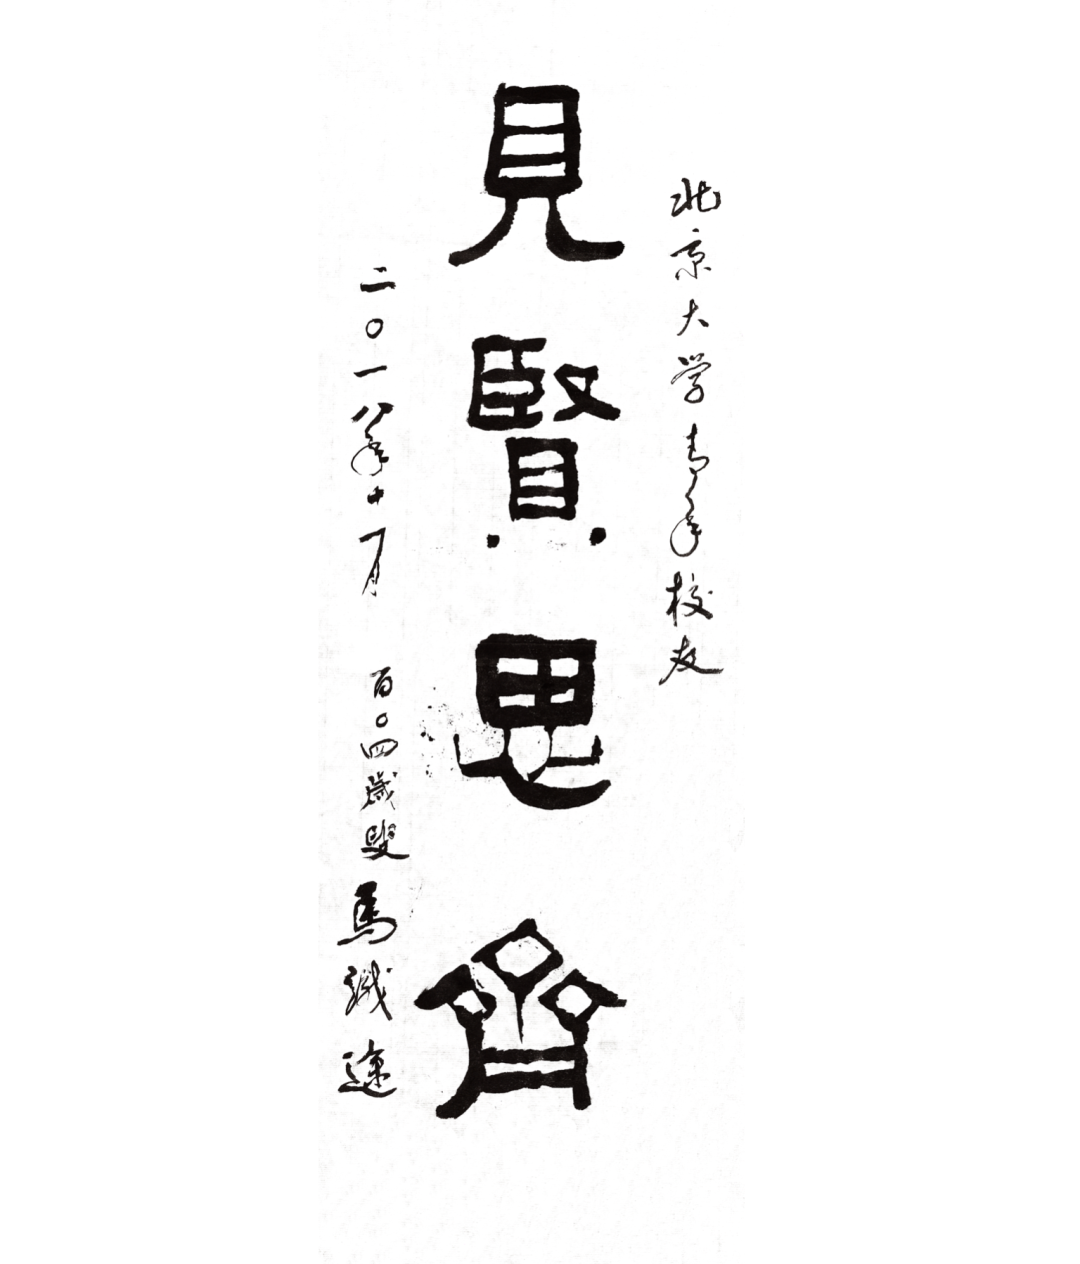 北京大学青年校友
見賢思齊
二〇一八年十一月
百〇四歲叟 馬識途